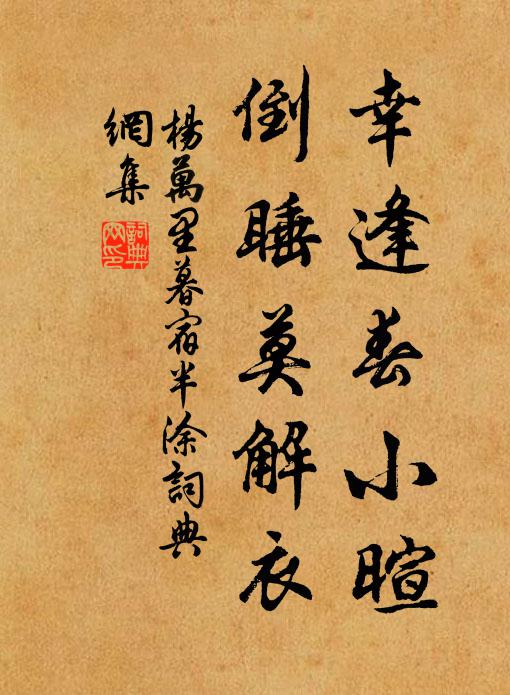 幸逢春小暄
倒睡莫解衣
楊萬里暮宿半涂詞典
網集
詞典
网印